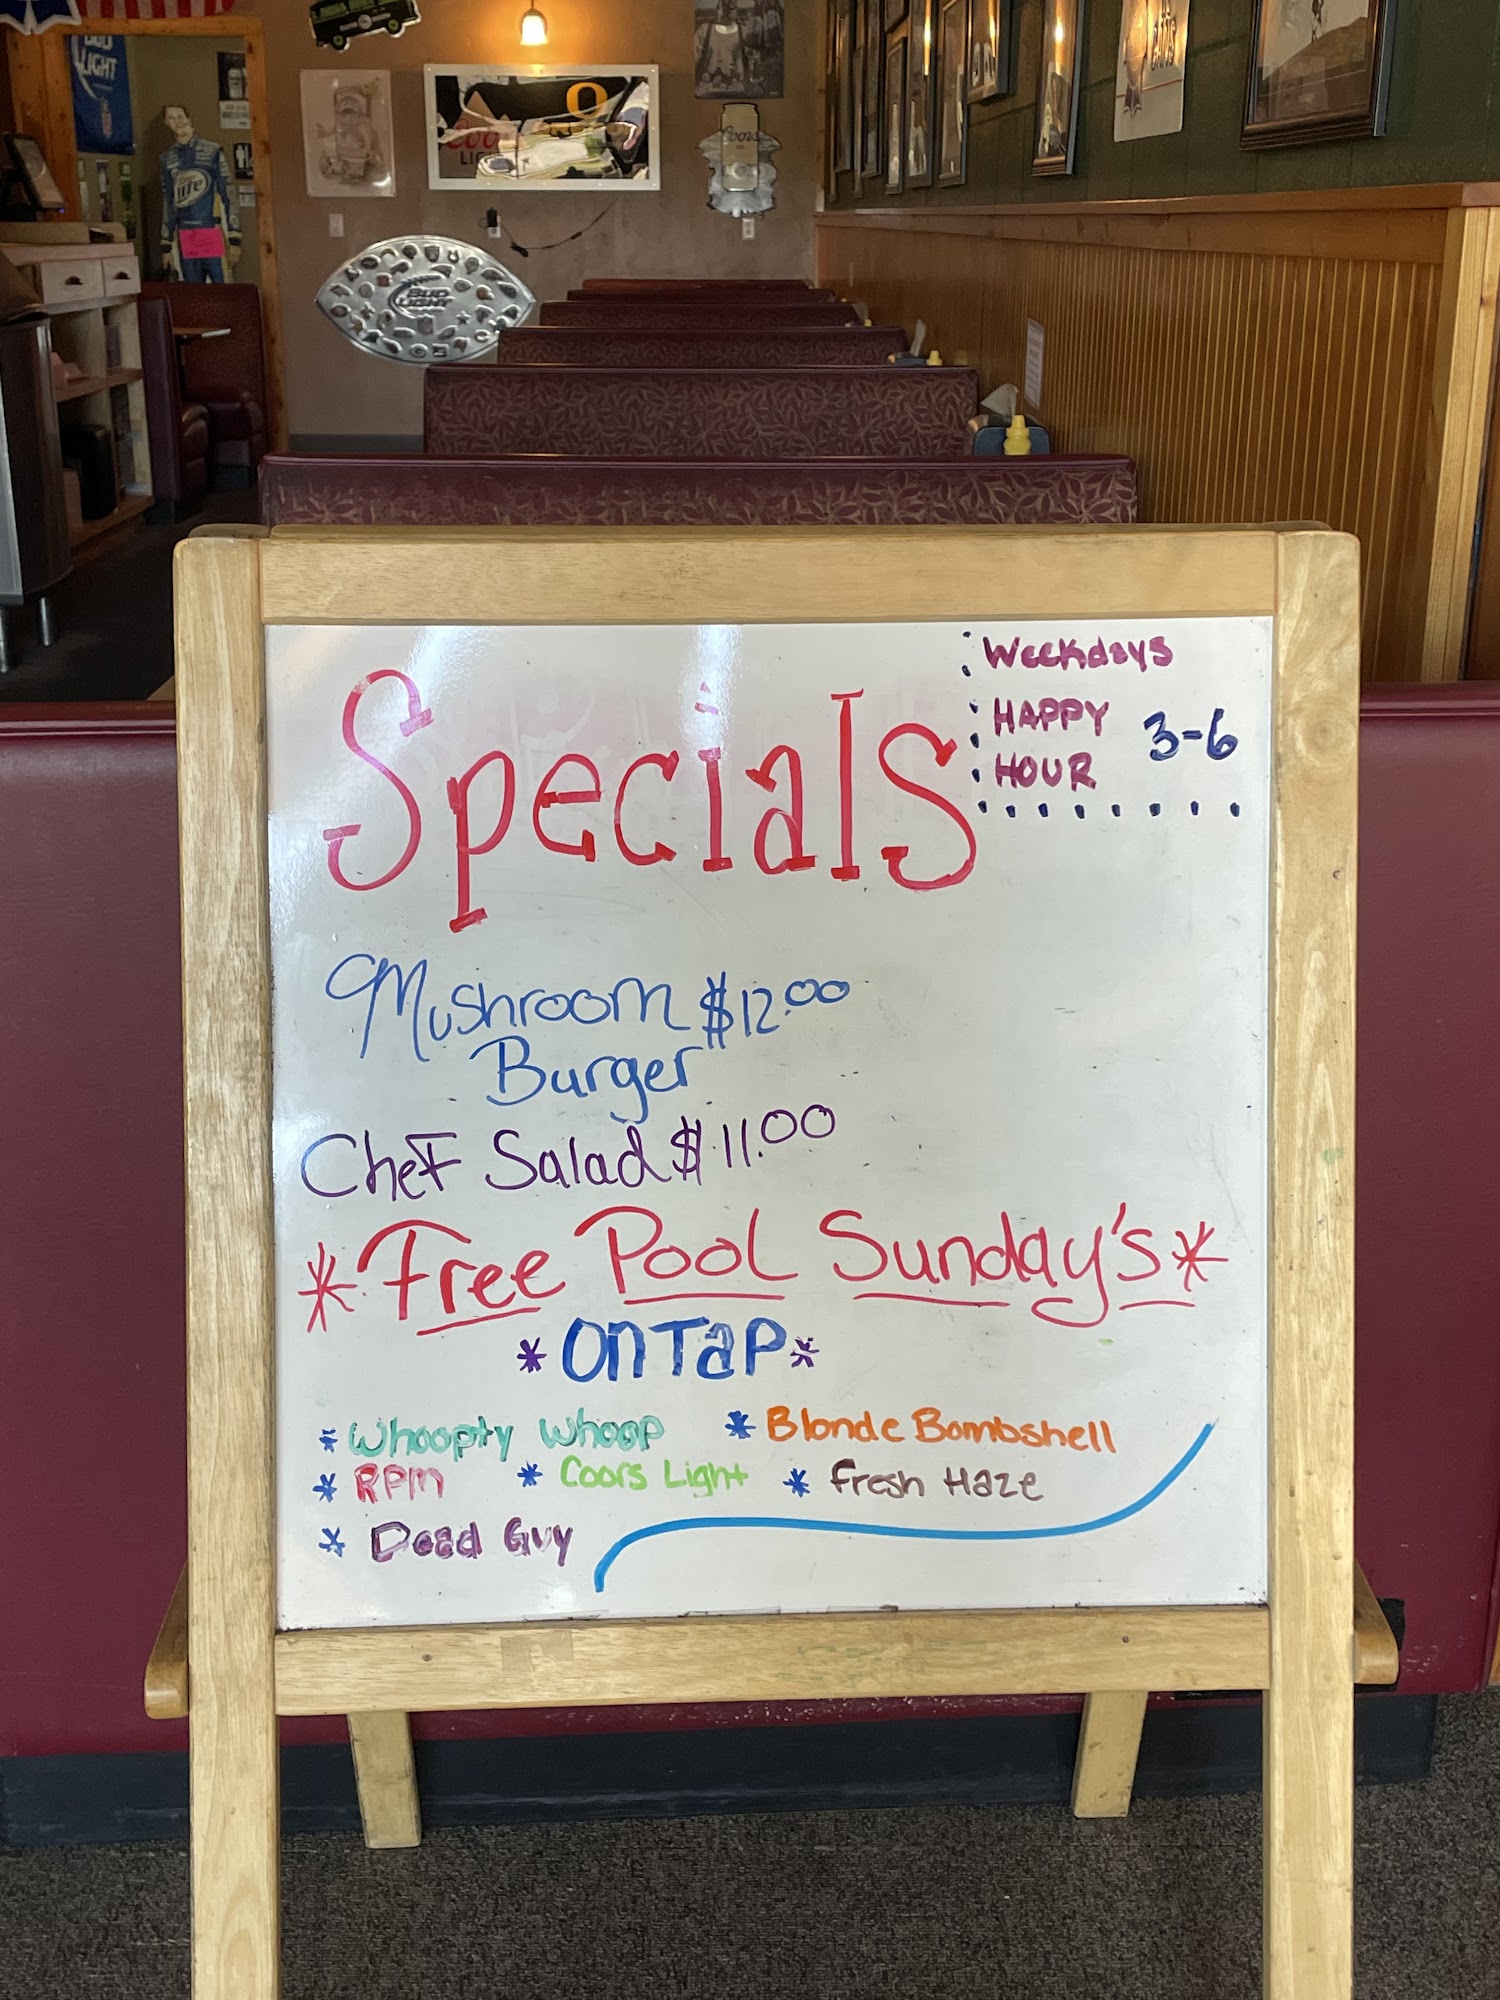 BUD LIGHT
Lite
O
Coors
LIGHT
Coors
BUD LIGHT
Weekdays
HAPPY HOUR 3-6
Specials
Mushroom $12.00
Burger
Chef Salad $11.00
*Free Pool Sunday's*
*ON TaP*
* Whoopty Whoop * Blonde Bombshell
* RPM * Coors Light * Fresh Haze
* Dead Guy